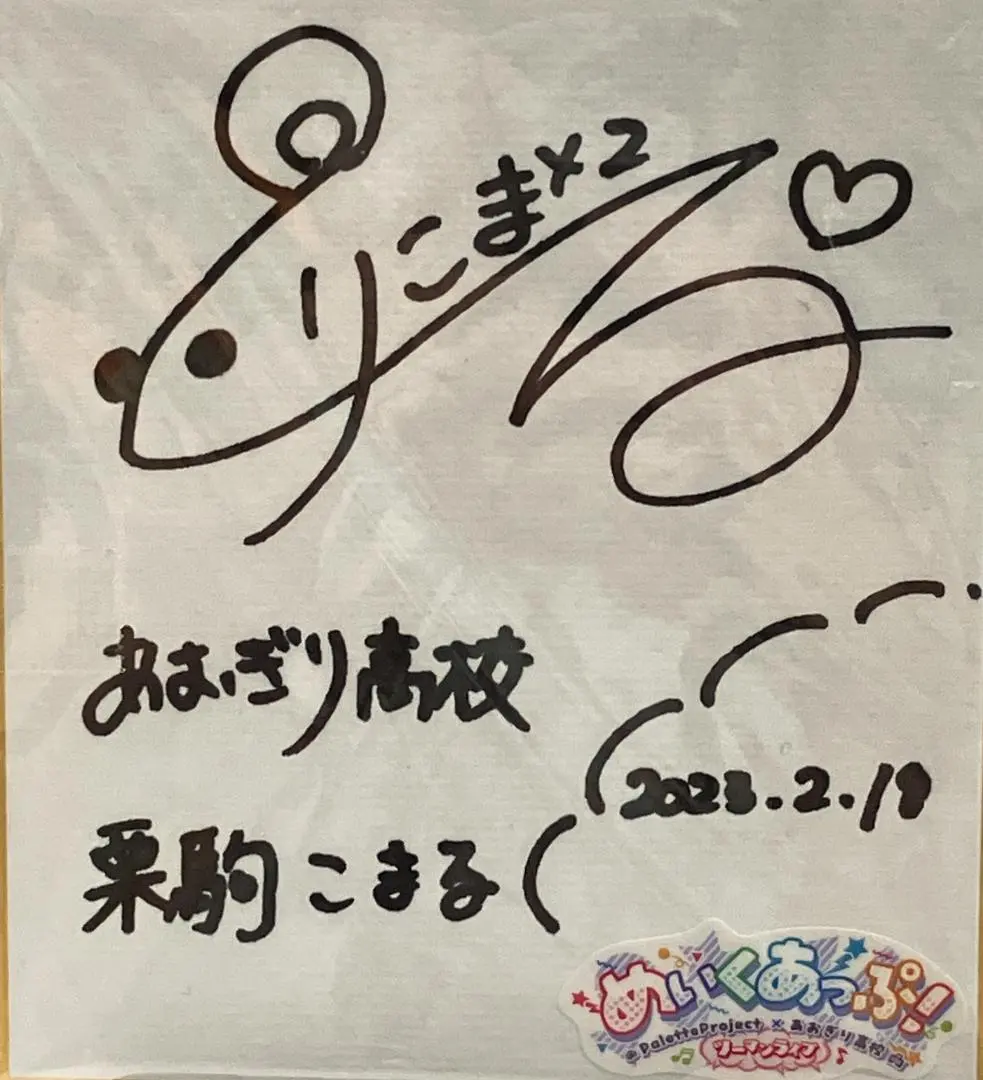 りこま×2る
あおぎり高校
2023.2.19
栗駒こまる
めいくあっぷ!
PaletteProject × あおぎり高校
ツーマンライブ